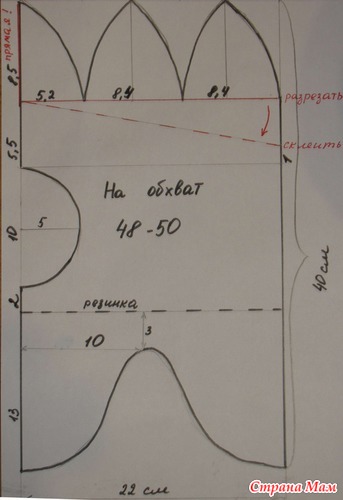 прямая!
8,5
5,2
8,4
8,4
разрезать
5,5
склеить
1
На обхват
48-50
5
10
40 см
2
резинка
3
10
13
22 см
Страна Мам